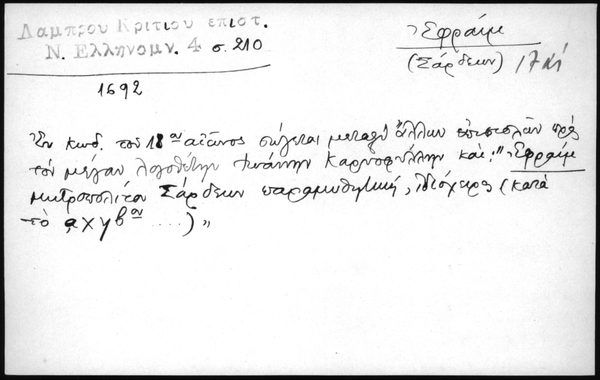 Λάμπρου Κριτίου επιστ.
Ν. Ελληνομν. 4 σ. 210
Ἐφραίμ
(Σάρδεων) 17 αἰ
1692
Ἐν κώδ. τοῦ 18ου αἰῶνος σώζεται μεταξὺ ἄλλων ἐπιστολῶν πρὸς
τὸν μέγαν λογοθέτην Ἰωάννην Καρυοφύλλην καὶ: "Ἐφραὶμ
μητροπολίτου Σάρδεων παραμυθητική, ἰδιόχειρος (κατὰ
τὸ αχγβον ....)"